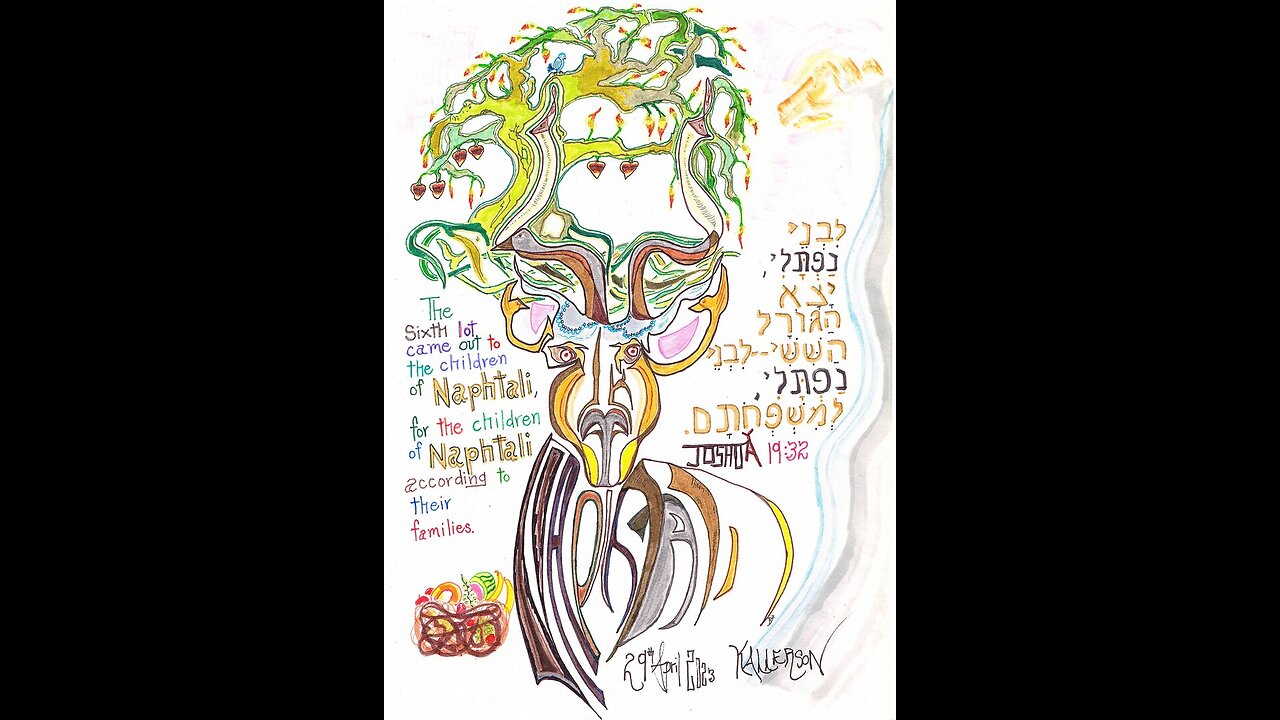 The
Sixth lot
came out to
the children
of Naphtali,
for the children
of Naphtali
according to
their
families.
לִבְנֵי
נַפְתָּלִי,
יָצָא
הַגּוֹרָל
הַשִּׁשִּׁי--לִבְנֵי
נַפְתָּלִי,
לְמִשְׁפְּחֹתָם.
JOSHUA 19:32
29th April 2023 KALLERSON